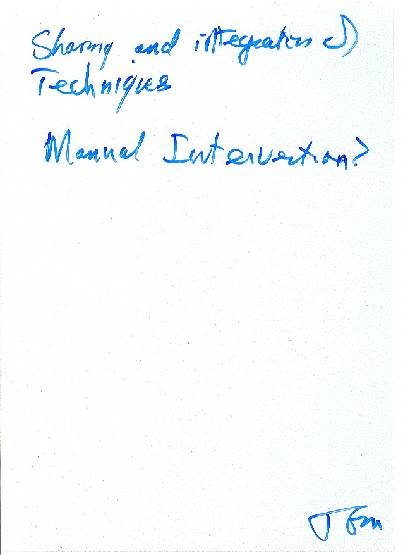 Sharing and integration of
Techniques
Manual Intervention?